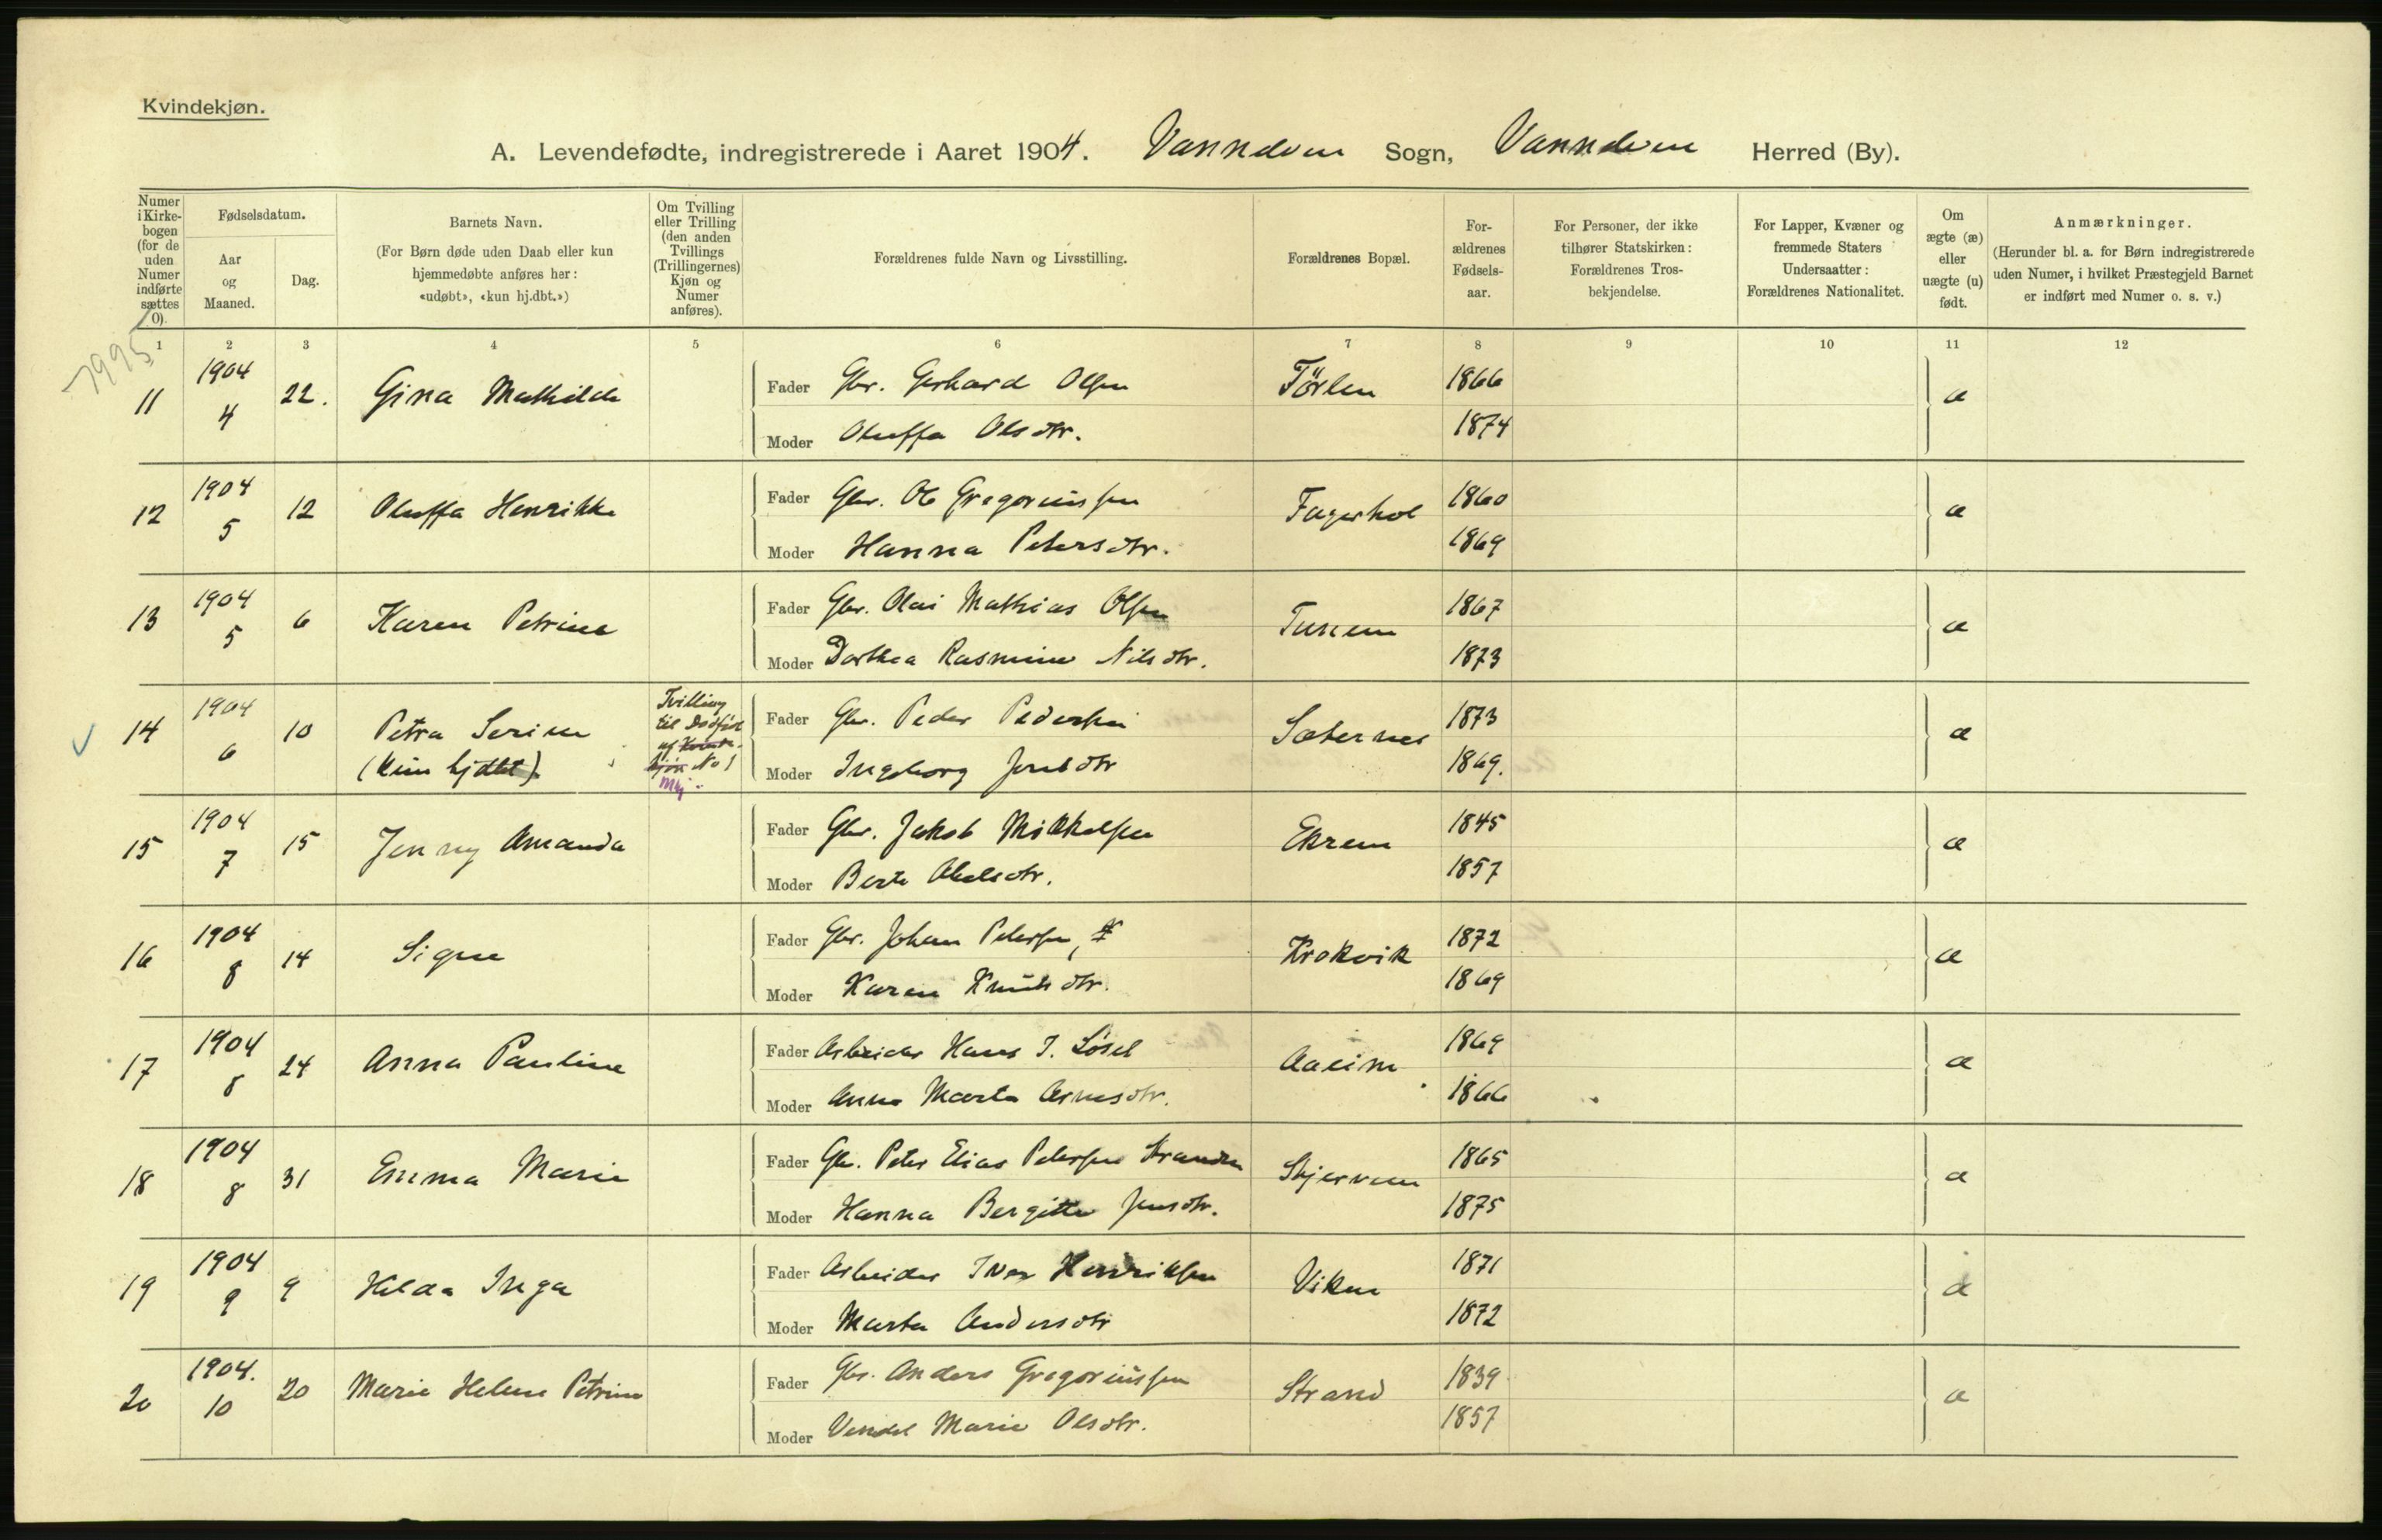 Kvindekjøn.
A. Levendefødte, indregistrerede i Aaret 1904. Vannelven Sogn, Vannelven Herred (By).
Numer i Kirke-bogen (for de uden Numer indførte sættes 0).
Fødselsdatum.
Aar og Maaned.
Dag.
Barnets Navn.
(For Børn døde uden Daab eller kun hjemmedøbte anføres her: «udøbt», «kun hj.dbt.»)
Om Tvilling eller Trilling (den anden Tvillings (Trillingernes) Kjøn og Numer anføres).
Forældrenes fulde Navn og Livsstilling.
Forældrenes Bopæl.
For-ældrenes Fødsels-aar.
For Personer, der ikke tilhører Statskirken: Forældrenes Tros-bekjendelse.
For Lapper, Kvæner og fremmede Staters Undersaatter: Forældrenes Nationalitet.
Om ægte (æ) eller uægte (u) født.
Anmærkninger.
(Herunder bl. a. for Børn indregistrerede uden Numer, i hvilket Præstegjeld Barnet er indført med Numer o. s. v.)
1 2 3 4 5 6 7 8 9 10 11 12
7995
11 1904 4 22. Gina Mathilde
Fader Gbr. Gerhard Olsen Törlen 1866 æ
Moder Oluffa Olsdtr. 1874
12 1904 5 12 Oluffa Henrikke
Fader Gbr. Ole Gregoriussen Fagerhol 1860 æ
Moder Hanna Petersdtr. 1869
13 1904 5 6 Karen Petrine
Fader Gbr. Olai Mathias Olsen Tunem 1867 æ
Moder Dorthea Rasmine Nilsdtr. 1873
14 1904 6 10 Petra Serine (kun hjdbt)
Tvilling til Dødfød af Kvindekjøn No 1
Mkj.
Fader Gbr. Peder Pedersen Sæternes 1873 æ
Moder Ingeborg Jensdtr 1869.
15 1904 7 15 Jenny Amanda
Fader Gbr. Jakob Mikkelsen Ekrem 1845 æ
Moder Berte Abelsdtr. 1857
16 1904 8 14 Signe
Fader Gbr. Johan Petersen, Krokvik 1872 æ
Moder Karen Knutsdtr. 1869
17 1904 8 24 Anna Pauline
Fader Arbeider Hans J. Løset Aaeim 1869 æ
Moder Anne Marta Arnesdtr. 1866
18 1904 8 31 Emma Marie
Fader Gbr. Peter Elias Petersen Stranden Skjerven 1865 æ
Moder Hanna Bergitte Jensdtr. 1875
19 1904 9 9 Hilda Inga
Fader Arbeider Iver Henriksen Viken 1871 æ
Moder Marta Andersdtr 1872
20 1904. 10 20 Marie Helene Petrine
Fader Gbr. Anders Gregoriussen Strand 1839 æ
Moder Vendel Marie Olsdtr. 1857